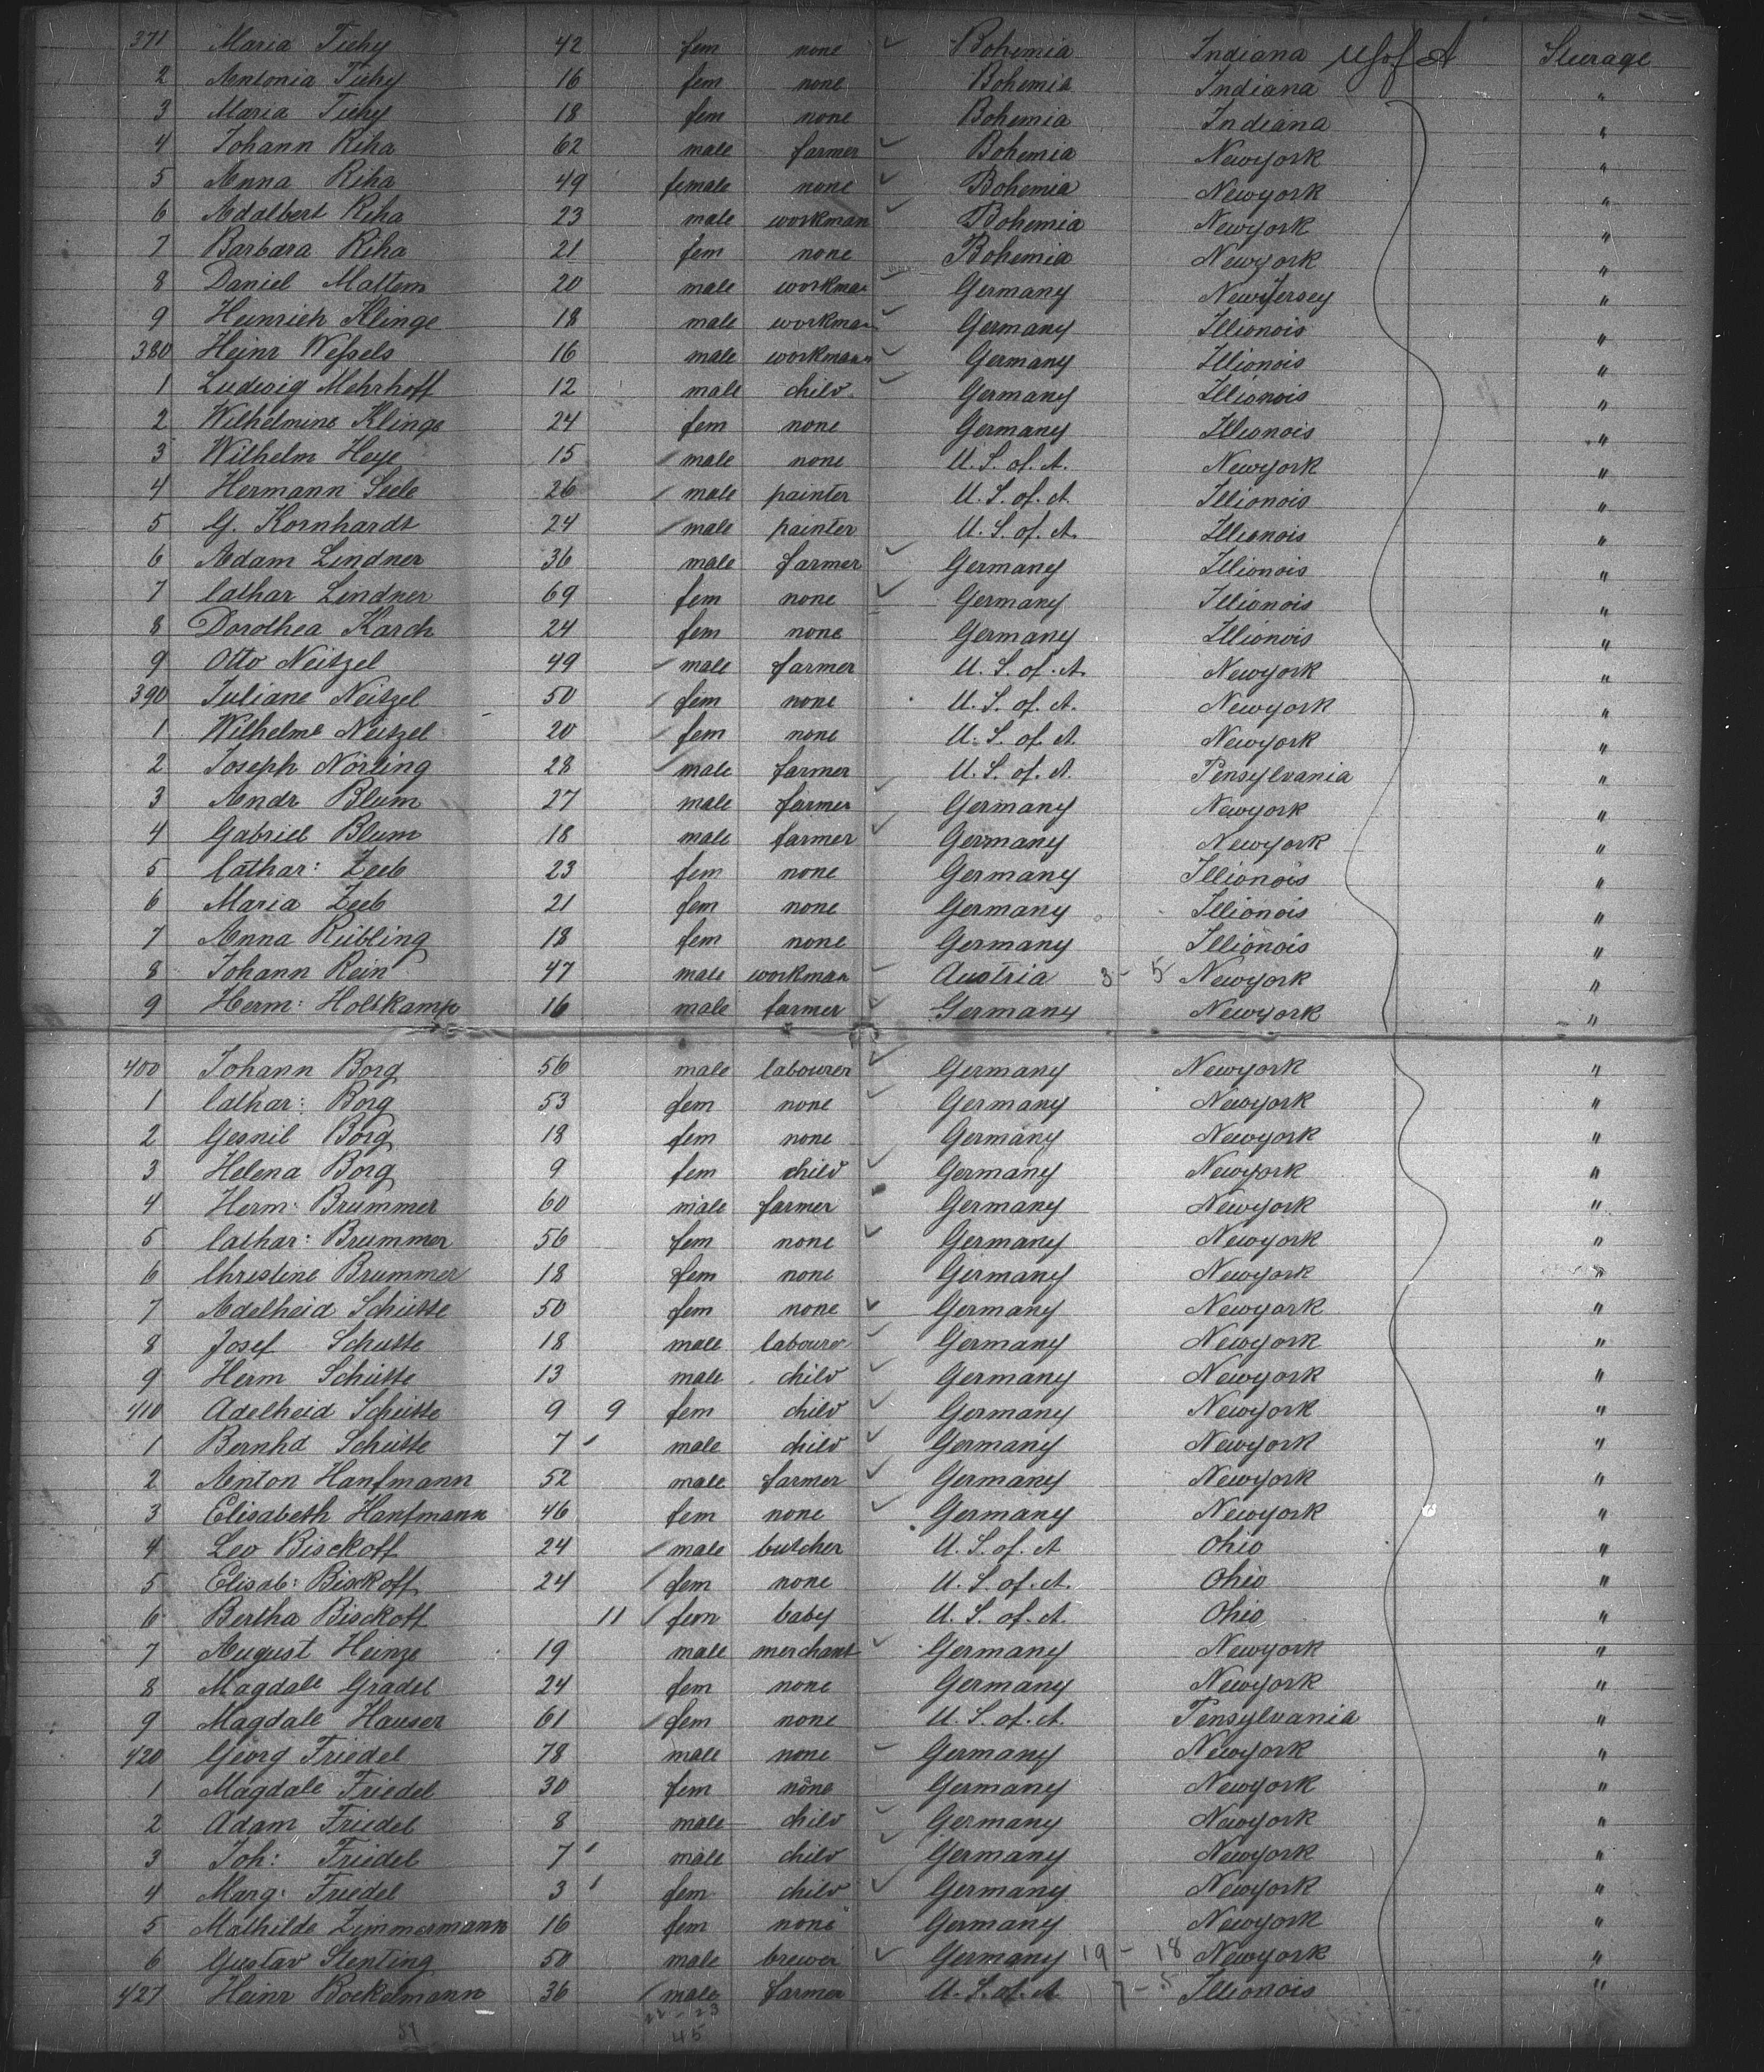 371 Maria Tichy 42 fem none ✓ Bohemia Indiana U S of A Steurage
2 Antonia Tichy 16 fem none Bohemia Indiana "
3 Maria Tichy 18 fem none Bohemia Indiana "
4 Johann Riha 62 male farmer ✓ Bohemia Newyork "
5 Anna Riha 49 female none ✓ Bohemia Newyork "
6 Adalbert Riha 23 male workman ✓ Bohemia Newyork "
7 Barbara Riha 21 fem none Bohemia Newyork "
8 Daniel Mattern 20 male workman ✓ Germany NewJersey "
9 Heinrich Klinge 18 male workman ✓ Germany Illionois "
380 Heinr Weſsels 16 male workmann ✓ Germany Illionois "
1 Ludwig Mehrhoff 12 male child ✓ Germany Illionois "
2 Wilhelmine Klinge 24 fem none Germany Illionois "
3 Wilhelm Heye 15 male none U. S. of. A. Newyork "
4 Hermann Seele 26 male painter U. S. of. A Illionois "
5 G. Kornhardt 24 male painter U. S. of. A. Illionois "
6 Adam Lindner 36 male farmer ✓ Germany Illionois "
7 Cathar Lindner 69 fem none ✓ Germany Illionois "
8 Dorothea Karch 24 fem none Germany Illionois "
9 Otto Neitzel 49 male farmer U. S. of. A. Newyork "
390 Juliane Neitzel 50 fem none U. S. of. A. Newyork "
1 Wilhelme Neitzel 20 fem none U. S. of. A Newyork "
2 Joseph Nörting 28 male farmer U. S. of. A. Pensylvania "
3 Andr Blum 27 male farmer ✓ Germany Newyork "
4 Gabriel Blum 18 male farmer ✓ Germany Newyork "
5 Cathar: Zeeb 23 fem none Germany Illionois "
6 Maria Zeeb 21 fem none Germany Illionois "
7 Anna Reibling 18 fem none Germany Illionois "
8 Johann Rein 47 male workman ✓ Austria 3 - 5 Newyork "
9 Herm: Holtkamp 16 male farmer ✓ Germany Newyork "
400 Johann Borg 56 male labourer ✓ Germany Newyork "
1 Cathar: Borg 53 fem none ✓ Germany Newyork "
2 Borg 18 fem none Germany Newyork "
3 Helena Borg 9 fem child ✓ Germany Newyork "
4 Herm: Brummer 60 male farmer Germany Newyork "
5 Cathar: Brummer 56 fem none ✓ Germany Newyork "
6 Christine Brummer 18 fem none Germany Newyork "
7 Adelheid Schütte 50 fem none ✓ Germany Newyork "
8 Josef Schutte 18 male labourer ✓ Germany Newyork "
9 Herm Schütte 13 male child ✓ Germany Newyork "
410 Adelheid Schütte 9 9 fem child ✓ Germany Newyork "
1 Bernhd Schütte 7 male child ✓ Germany Newyork "
2 Anton Hanfmann 52 male farmer ✓ Germany Newyork "
3 Elisabeth Hanfmann 46 fem none ✓ Germany Newyork "
4 Leo Bisckoff 24 male butcher U. S. of. A Ohio "
5 Elisab: Bisckoff 24 fem none U. S. of. A. Ohio "
6 Bertha Bisckoff 11 fem baby U. S. of. A. Ohio "
7 August Heinze 19 male merchant ✓ Germany Newyork "
8 Magdale Gradel 24 fem none Germany Newyork "
9 Magdale Hauser 61 fem none U. S. of. A. Pensylvania "
420 Georg Friedel 78 male none ✓ Germany Newyork "
1 Magdale Friedel 30 fem none Germany Newyork "
2 Adam Friedel 8 male child ✓ Germany Newyork "
3 Joh: Friedel 7 male child ✓ Germany Newyork "
4 Marg: Friedel 3 fem child ✓ Germany Newyork "
5 Mathilde Zimmermann 16 fem none Germany Newyork "
6 Gustav Stenting 50 male brewer ✓ Germany 19 - 18 Newyork "
427 Heinr Bockelmann 36 male farmer U. S. of. A 7 - 5 Illionois "
22 - 23
51 45